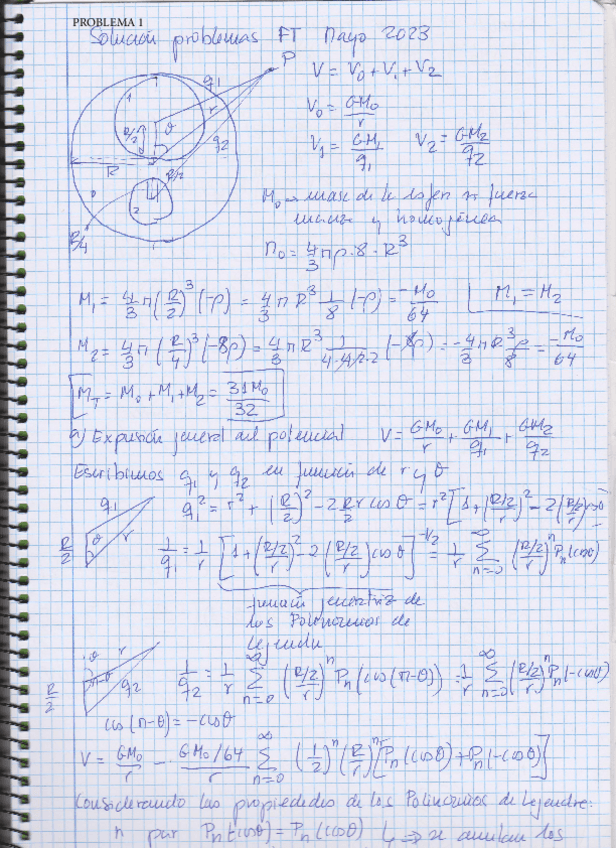 PROBLEMA 1
Solución problemas FT Mayo 2023
P
q₁
r
q₂
1
R/2
θ
R
R/2
2
R/4
V = V₀ + V₁ + V₂
V₀ = GM₀/r
V₁ = GM₁/q₁ V₂ = GM₂/q₂
M₀ → masa de la si fuera
maciza y homogénea
M₀ = 4/3 πρ·8·R³
M₁ = 4/3 π(R/2)³(-ρ) = 4/3 πR³ 1/8 (-ρ) = -M₀/64 M₁ = M₂
M₂ = 4/3 π(R/4)³(-8ρ) = 4/3 πR³ 1/(4·4·2·2) (-8ρ) = -4/3 πR³ρ/8 = -M₀/64
M_T = M₀ + M₁ + M₂ = 31M₀/32
a) Expresión general del potencial V = GM₀/r + GM₁/q₁ + GM₂/q₂
Escribimos q₁ y q₂ en función de r y θ
q₁
R/2 θ r
q₁² = r² + (R/2)² - 2 R/2 r cos θ = r² [1 + (R/2/r)² - 2(R/2/r) cos θ]
1/q₁ = 1/r [1 + (R/2/r)² - 2(R/2/r) cos θ]^(-1/2) = 1/r Σ_{n=0}^∞ (R/2/r)ⁿ Pₙ(cosθ)
función generatriz de
los Polinomios de
Legendre
θ r
π-θ
R/2 q₂
1/q₂ = 1/r Σ_{n=0}^∞ (R/2/r)ⁿ Pₙ(cos(π-θ)) = 1/r Σ_{n=0}^∞ (R/2/r)ⁿ Pₙ(-cosθ)
cos(π-θ) = -cosθ
V = GM₀/r - GM₀/64/r Σ_{n=0}^∞ (1/2)ⁿ (R/r)ⁿ [Pₙ(cosθ) + Pₙ(-cosθ)]
Considerando las propiedades de los Polinomios de Legendre:
n par Pₙ(-cosθ) = Pₙ(cosθ) ⇒ se anulan los